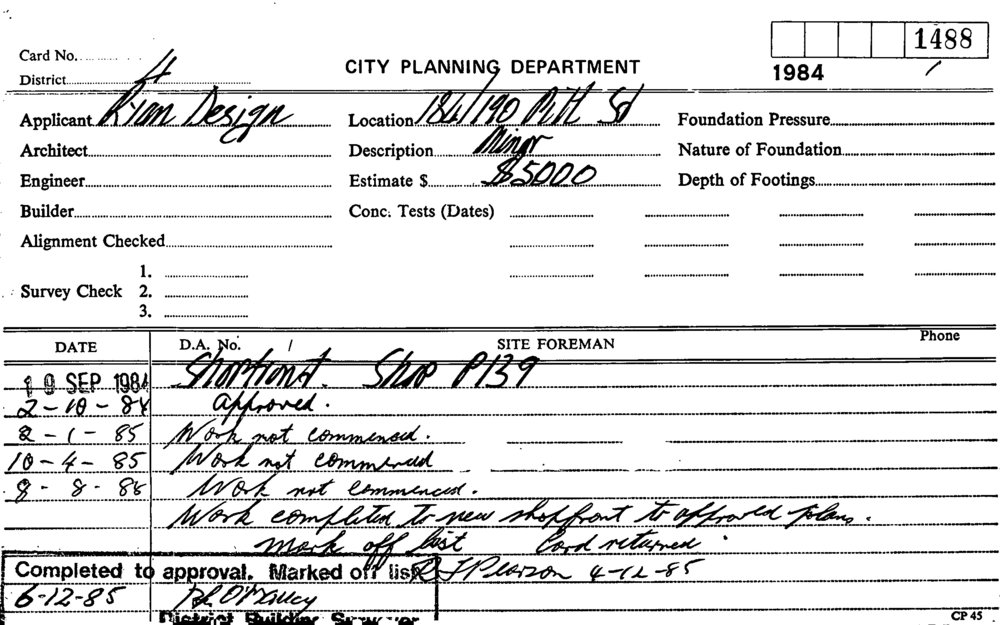 1488
1984 /
Card No.
District 4
CITY PLANNING DEPARTMENT
Applicant Ryan Design
Location 184/190 Pitt St
Foundation Pressure
Architect
Description Minor
Nature of Foundation
Engineer
Estimate $ $5000
Depth of Footings
Builder
Conc. Tests (Dates)
Alignment Checked
1.
Survey Check 2.
3.
DATE D.A. No. / SITE FOREMAN Phone
19 SEP 1984 Shopfront. Shop P139
2-10-84 approved.
2-1-85 Work not commenced.
10-4-85 Work not commenced
8-8-85 Work not commenced.
Work completed to new shopfront to approved plans.
mark off list Card returned.
Completed to approval. Marked off list R J Pearson 4-12-85
6-12-85
District Building Surveyor
CP 45